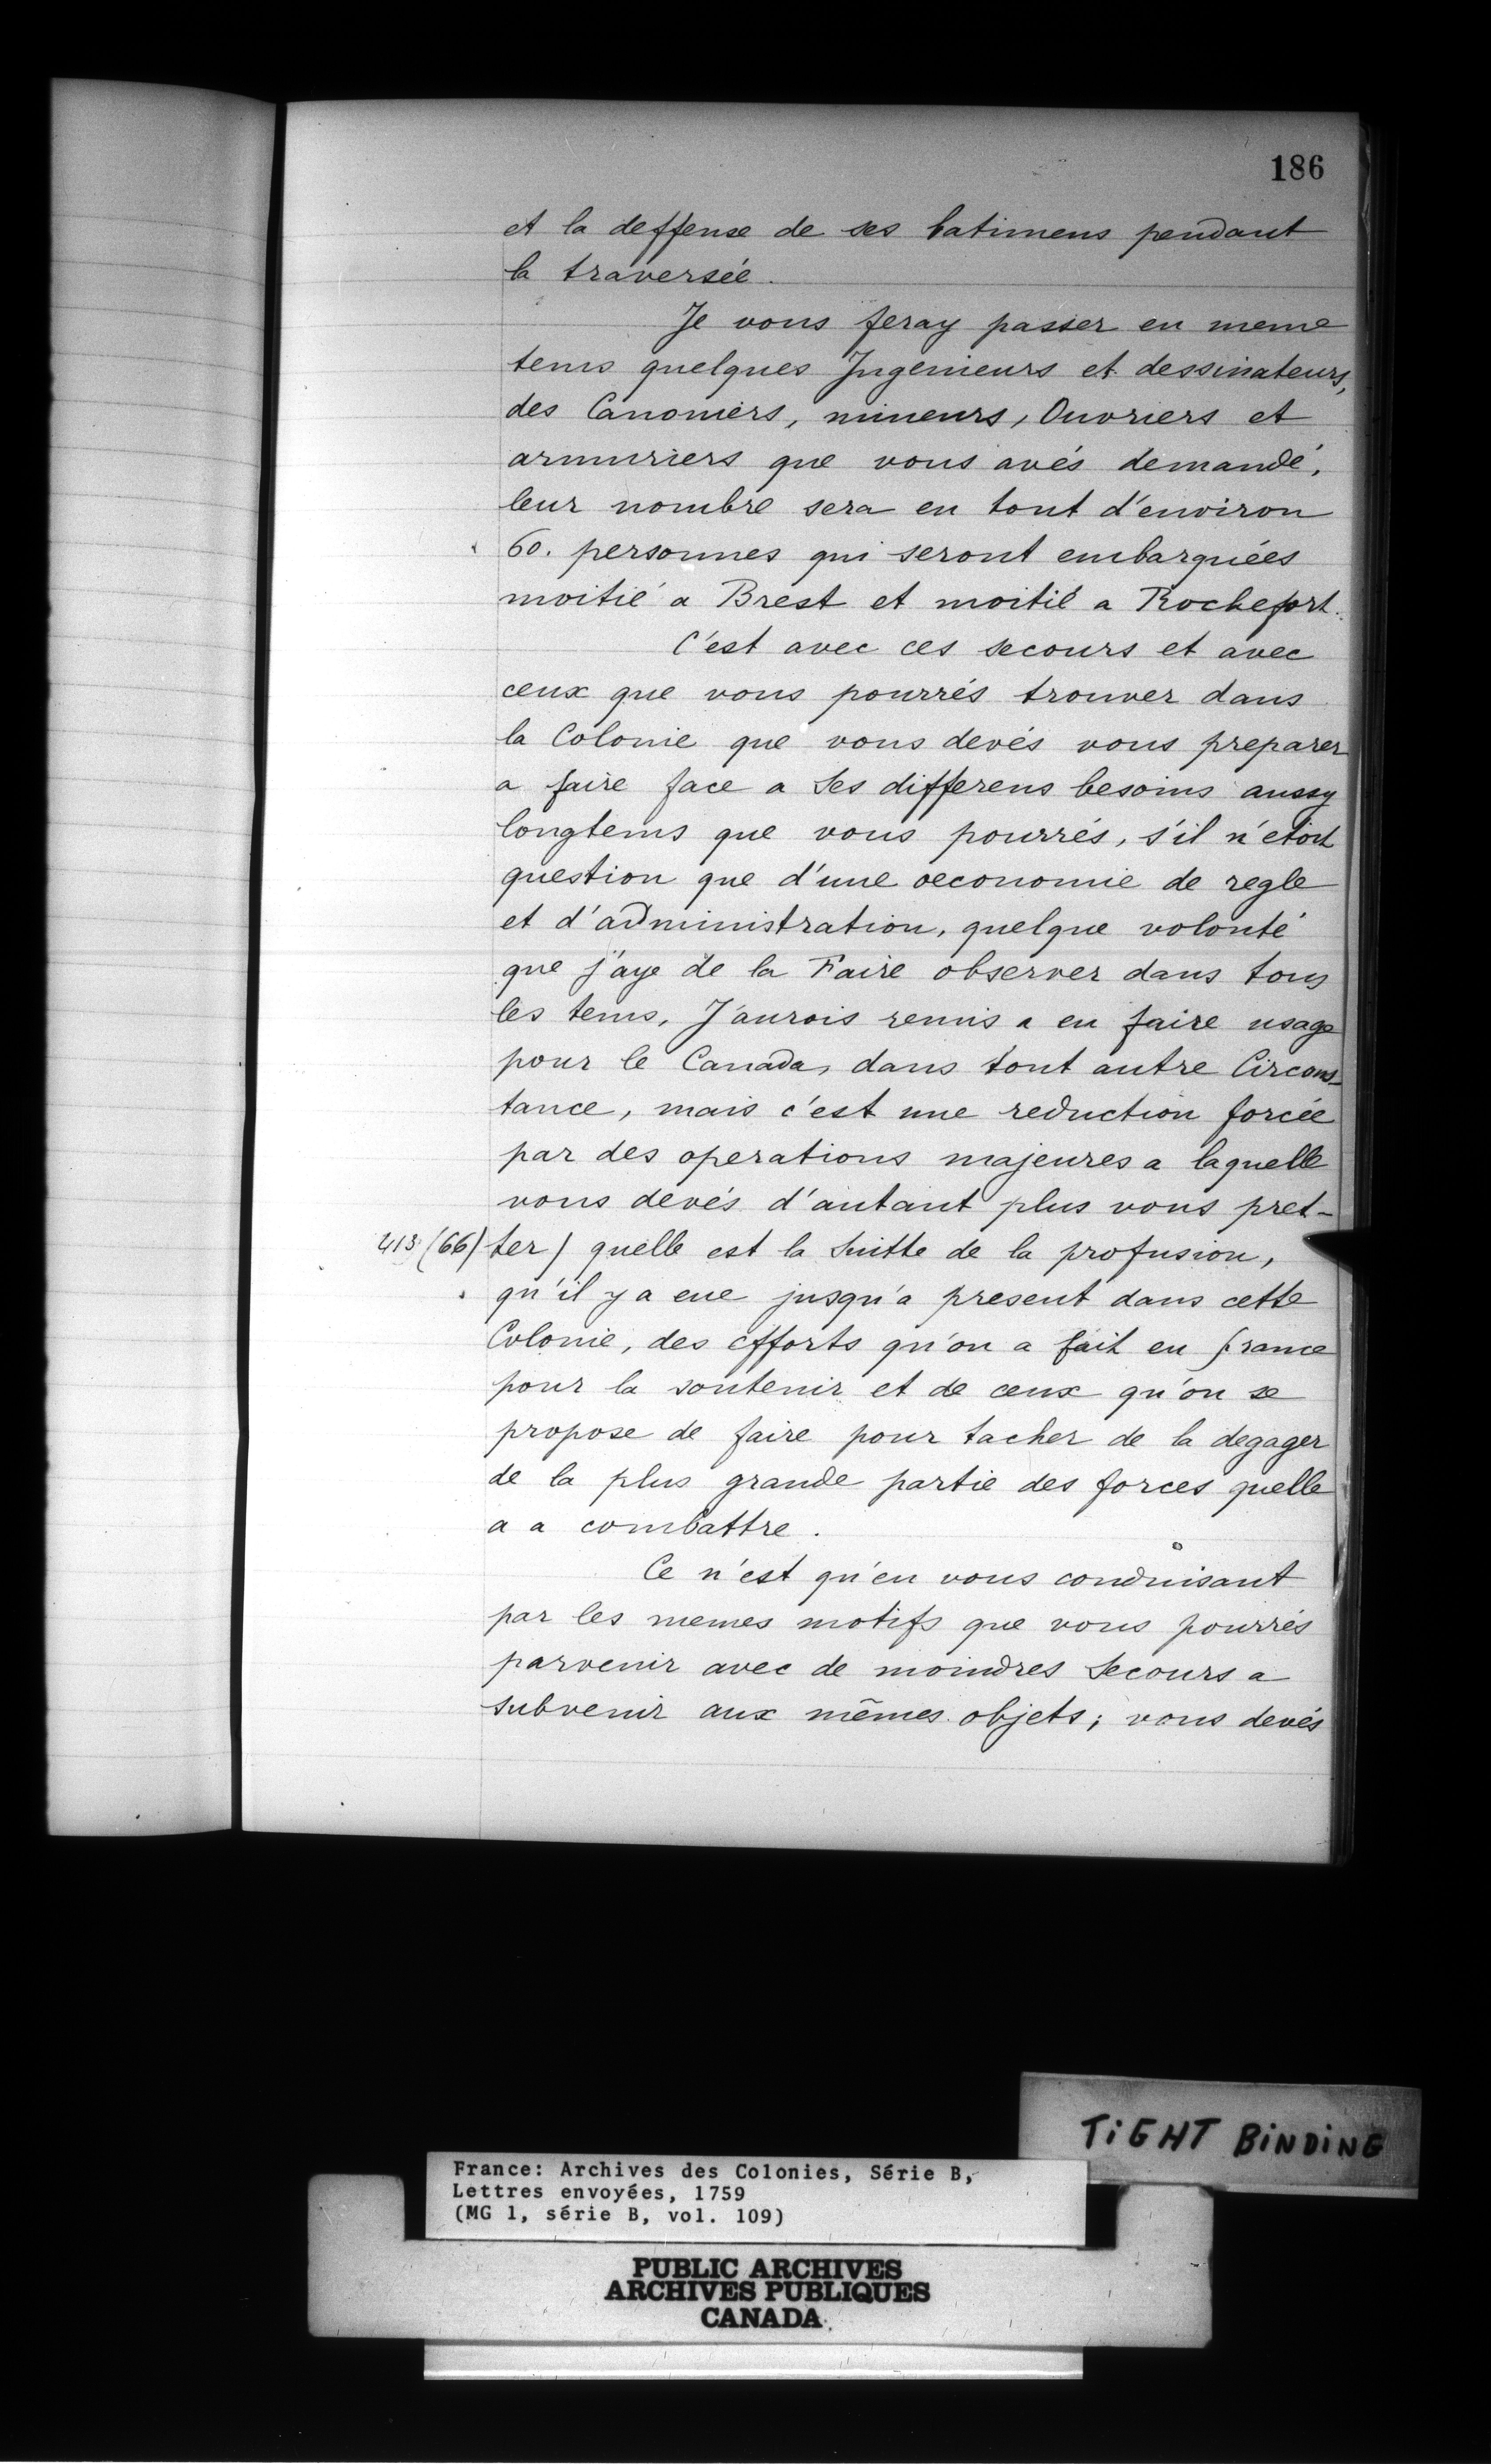 186
et la deffense de ses batimens pendant
la traversée.
Je vous feray passer en meme
tems quelques Ingenieurs et dessinateurs,
des Canoniers, mineurs, Ouvriers et
armuriers que vous avés demandé,
leur nombre sera en tout d'environ
60. personnes qui seront embarquées
moitié a Brest et moitié a Rochefort.
C'est avec ces secours et avec
ceux que vous pourrés trouver dans
la Colonie que vous devés vous preparer
a faire face a Ses differens besoins aussy
longtems que vous pourrés, s'il n'etoit
question que d'une oeconomie de regle
et d'administration, quelque volonté
que j'aye de la Faire observer dans tous
les tems, J'aurois remis a en faire usage
pour le Canada, dans tout autre Circons-
tance, mais c'est une reduction forcée
par des operations majeures a laquelle
vous devés d'autant plus vous pret-
413 (66) ter / quelle est la Suitte de la profusion,
qu'il y a eue jusqu'a present dans cette
Colonie, des efforts qu'on a fait en france
pour la soutenir et de ceux qu'on se
propose de faire pour tacher de la degager
de la plus grande partie des forces quelle
a a combattre.
Ce n'est qu'en vous conduisant
par les memes motifs que vous pourrés
parvenir avec de moindres Secours a
subvenir aux mêmes objets; vous devés
TiGHT BiNDiNG
France: Archives des Colonies, Série B,
Lettres envoyées, 1759
(MG 1, série B, vol. 109)
PUBLIC ARCHIVES
ARCHIVES PUBLIQUES
CANADA